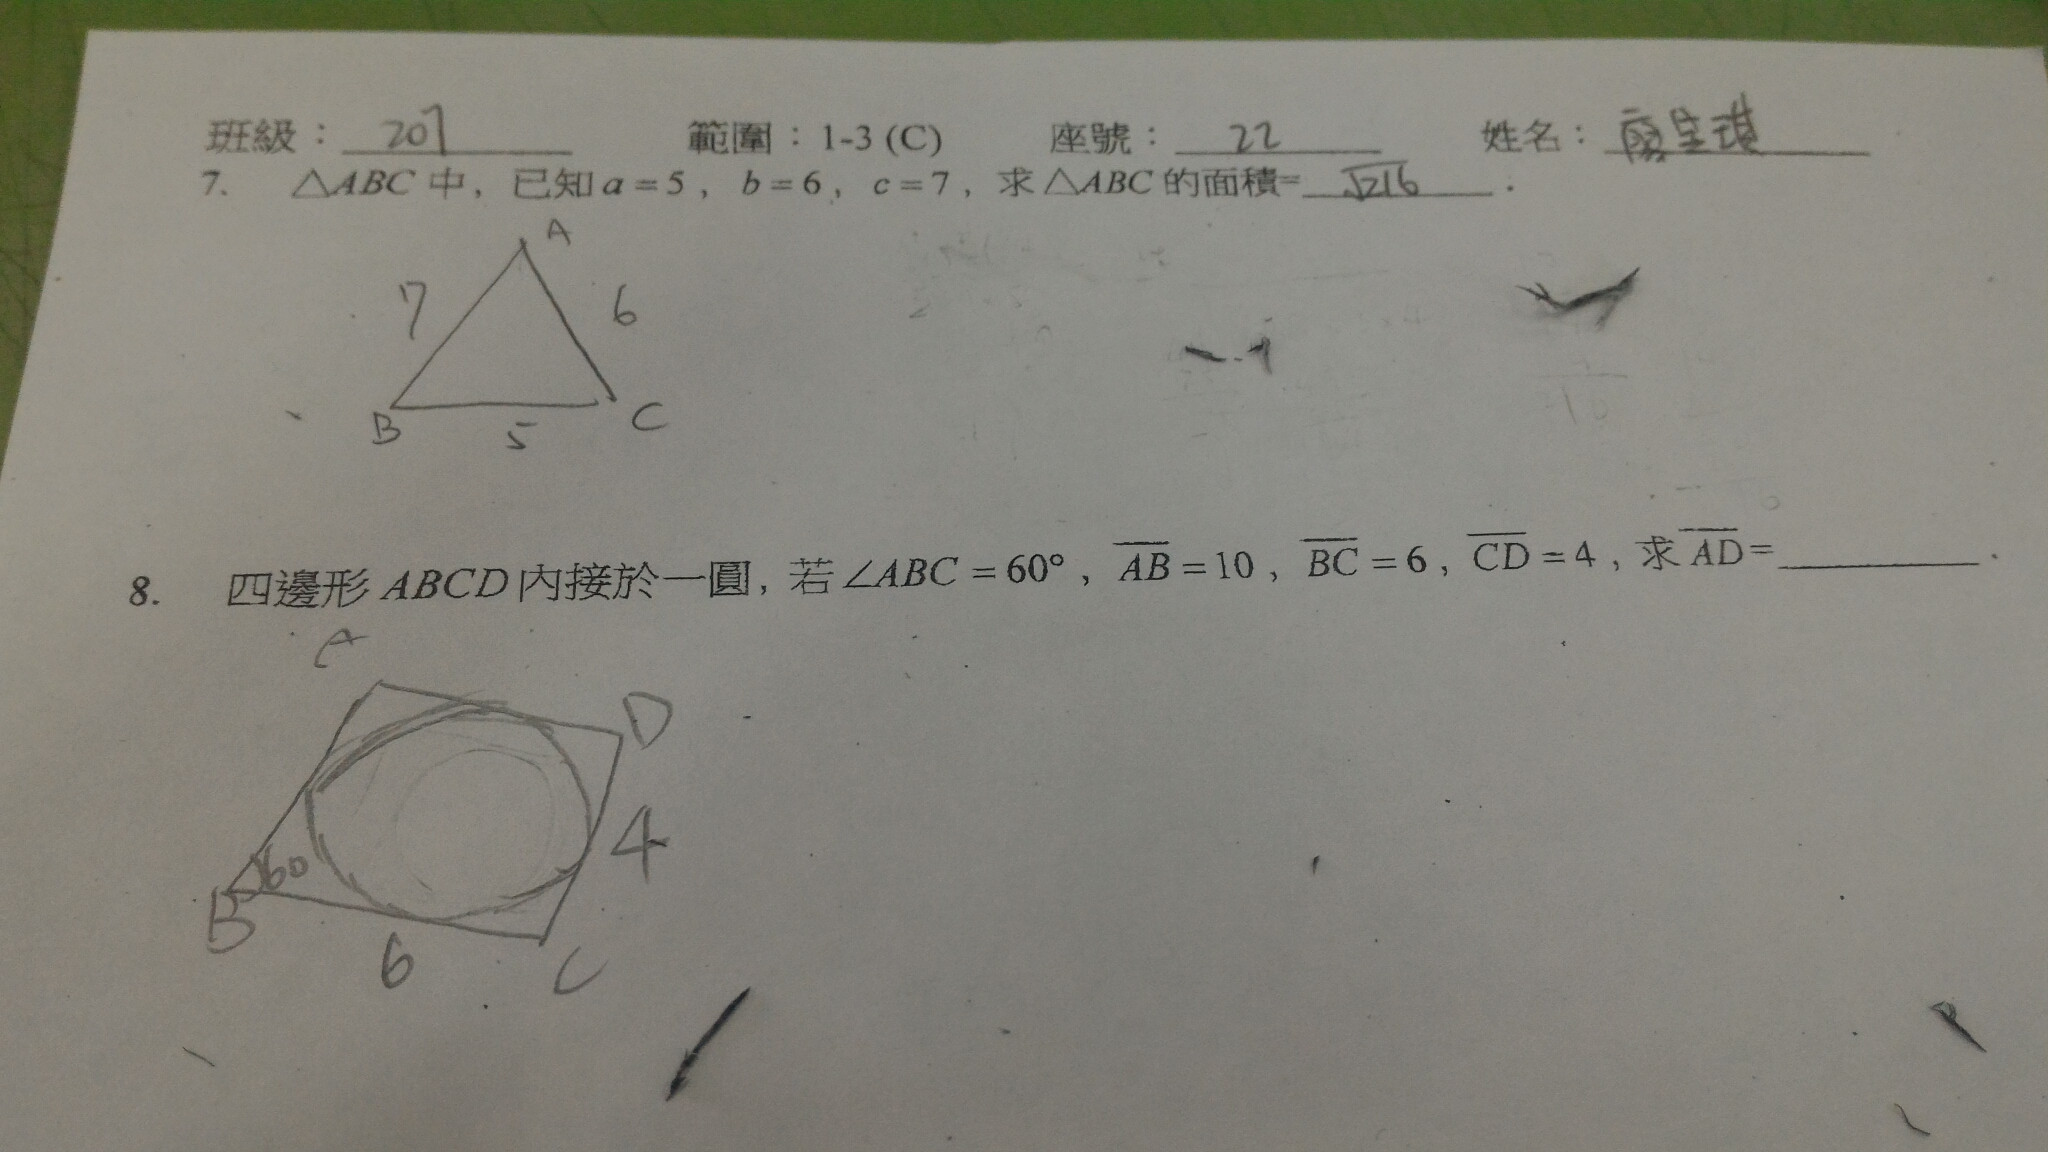 班級： 207 範圍：1-3 (C) 座號： 22 姓名：
7. △ABC 中，已知 a = 5，b = 6，c = 7，求 △ABC 的面積= √216 .
A
7 6
B 5 C
8. 四邊形 ABCD 內接於一圓，若 ∠ABC = 60°，AB = 10，BC = 6，CD = 4，求 AD = .
A
D
4
60
B
6 C